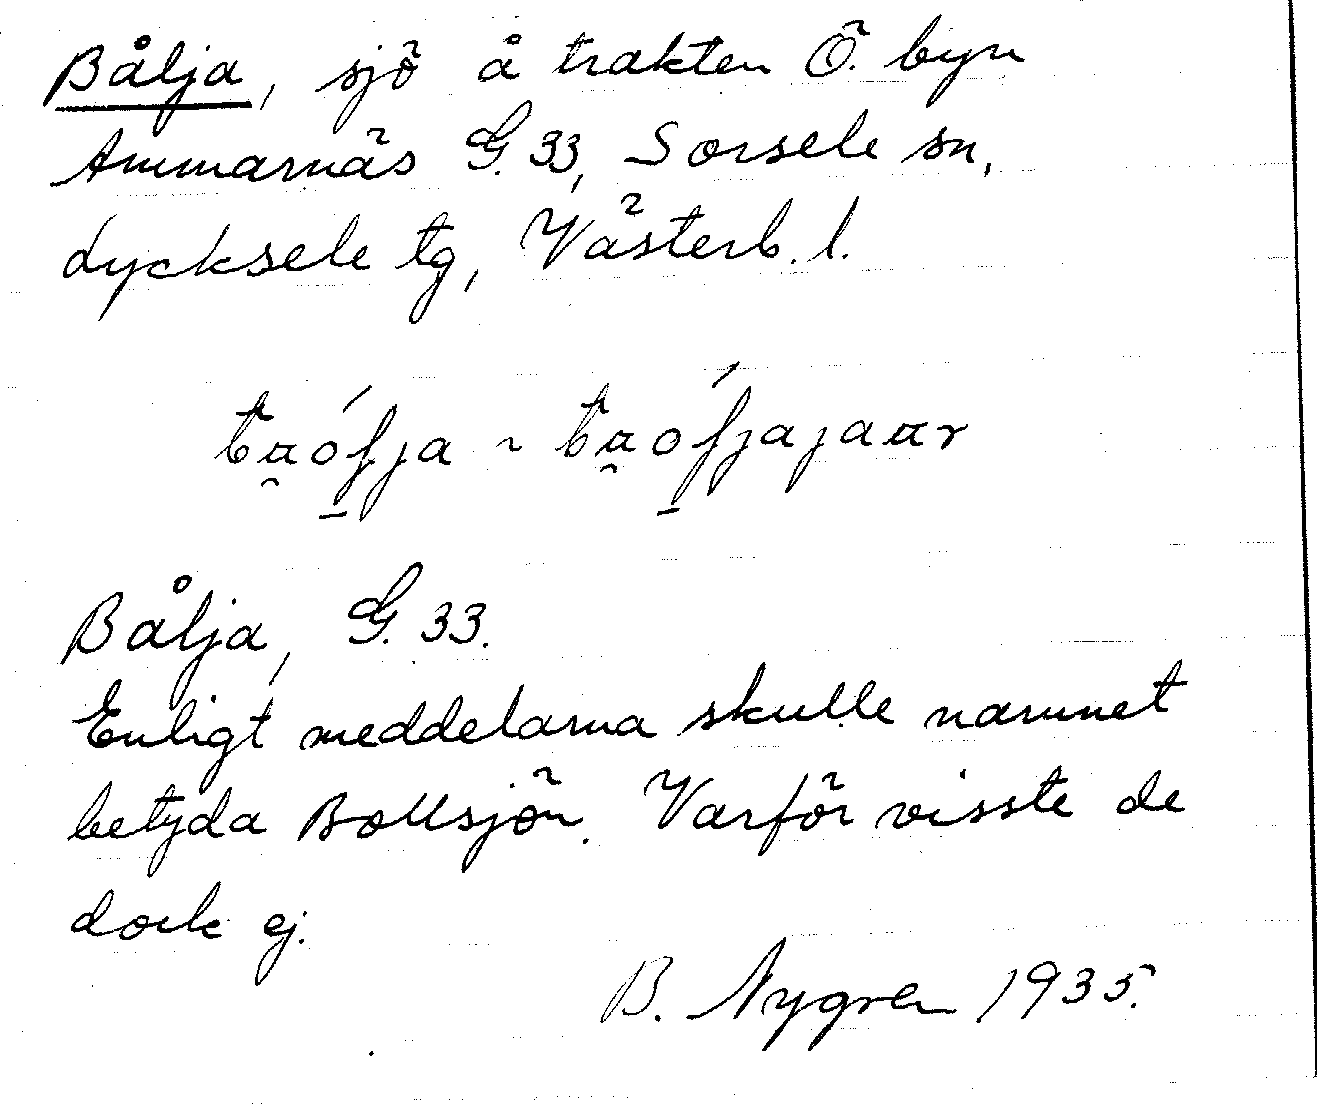 Bålja, sjö å trakten Ö. byn
Ammarnäs G. 33, Sorsele sn,
Lycksele tg, Västerb. l.
Bålja, G. 33.
Enligt meddelarna skulle namnet
betyda Bollsjön. Varför visste de
dock ej.
B. Nygren 1935.